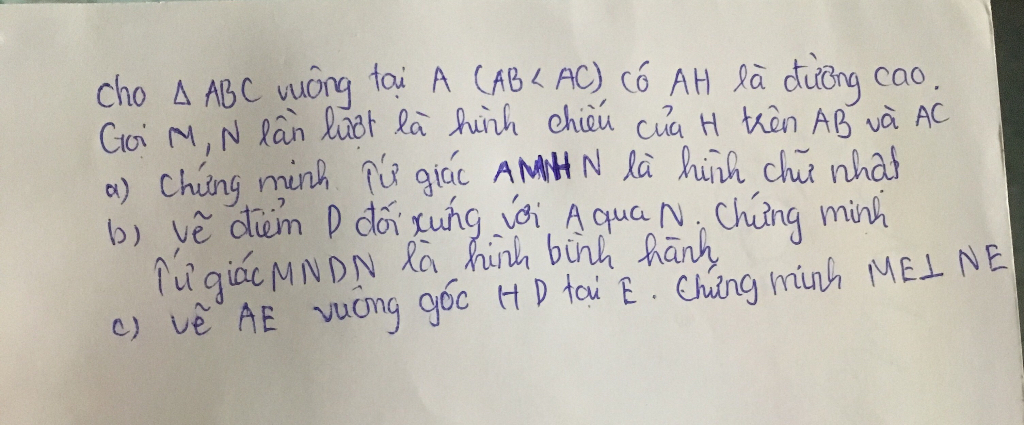 Cho Δ ABC vuông tại A (AB < AC) có AH là đường cao.
Gọi M, N lần lượt là hình chiếu của H trên AB và AC
a) Chứng minh Tứ giác AMHN là hình chữ nhật
b) vẽ điểm D đối xứng với A qua N. Chứng minh
Tứ giác MNDN là hình bình hành
c) vẽ AE vuông góc HD tại E. Chứng minh ME⊥ NE